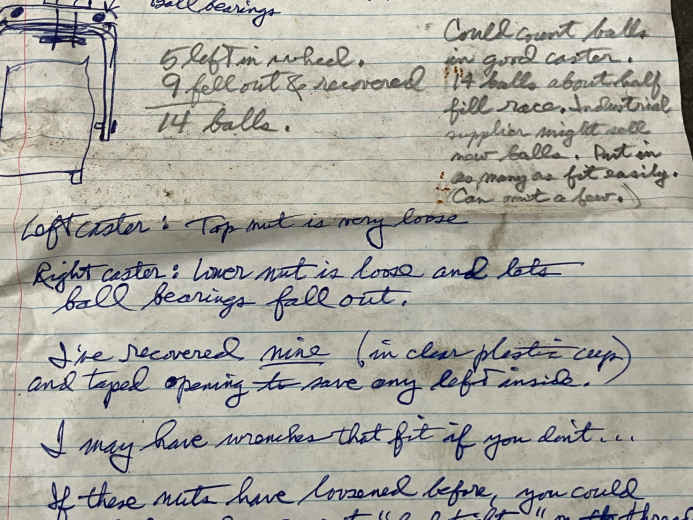 Ball bearings
5 left in wheel.
9 fell out & recovered
14 balls.
Could count balls
in good caster.
14 balls about half
fill race. Industrial
supplier might sell
new balls. Put in
as many as fit easily.
(Can omit a few.)
Left caster: Top nut is very loose
Right caster: Lower nut is loose and lets
ball bearings fall out.
I've recovered nine (in clear plastic cup)
and taped opening to save any left inside.
I may have wrenches that fit if you don't...
If these nuts have loosened before, you could